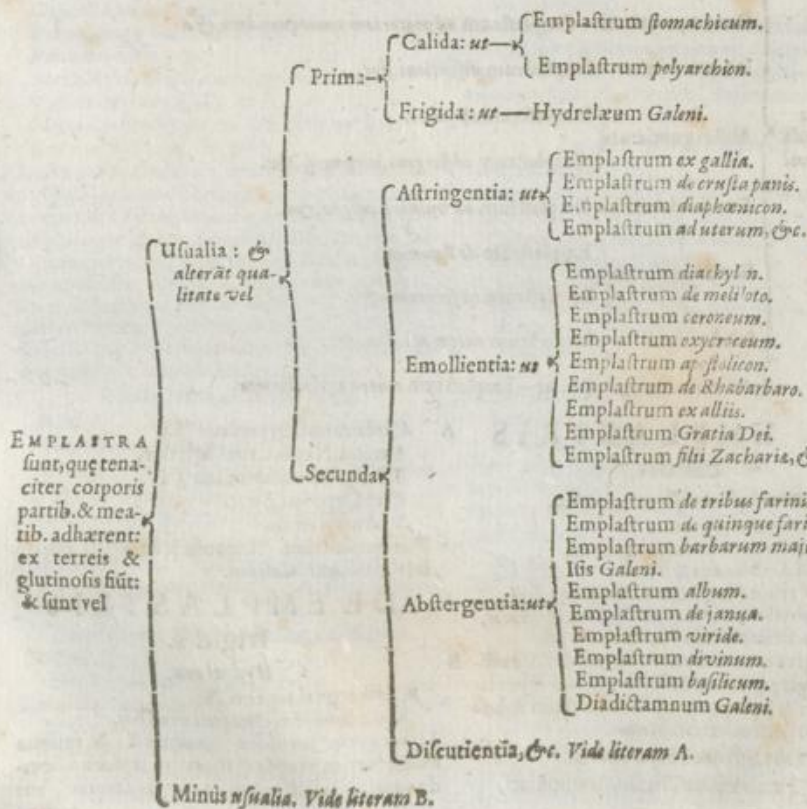 EMPLASTRA
sunt, quę tena-
citer corporis
partib. & mea-
tib. adhærent:
ex terreis &
glutinosis fiūt:
& sunt vel
Usualia: &
alterāt qua-
litate vel
Prima
Calida: ut
Emplastrum stomachicum.
Emplastrum polyarchion.
Frigida: ut Hydrelæum Galeni.
Secunda
Astringentia: ut
Emplastrum ex gallia.
Emplastrum de crusta panis.
Emplastrum diaphœnicon.
Emplastrum ad uterum, &c.
Emollientia: ut
Emplastrum diachyl n.
Emplastrum de meliloto.
Emplastrum ceroneum.
Emplastrum oxycroceum.
Emplastrum apostolicon.
Emplastrum de Rhabarbaro.
Emplastrum ex alliis.
Emplastrum Gratia Dei.
Emplastrum filii Zachariæ, &
Abstergentia: ut
Emplastrum de tribus farini
Emplastrum de quinque fari
Emplastrum barbarum maj
Isis Galeni.
Emplastrum album.
Emplastrum de janua.
Emplastrum viride.
Emplastrum divinum.
Emplastrum basilicum.
Diadictamnum Galeni.
Discutientia, &c. Vide literam A.
Minùs usualia. Vide literam B.